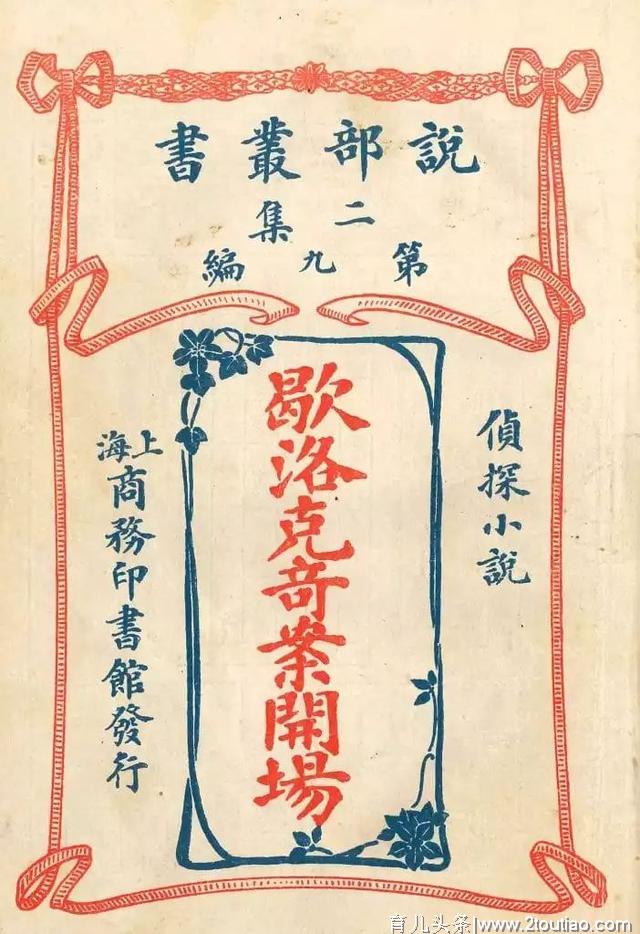 說部叢書
二集
第九編
偵探小說
歇洛克奇案開場
上海
商務印書館發行
育儿头条|www.2toutiao.com